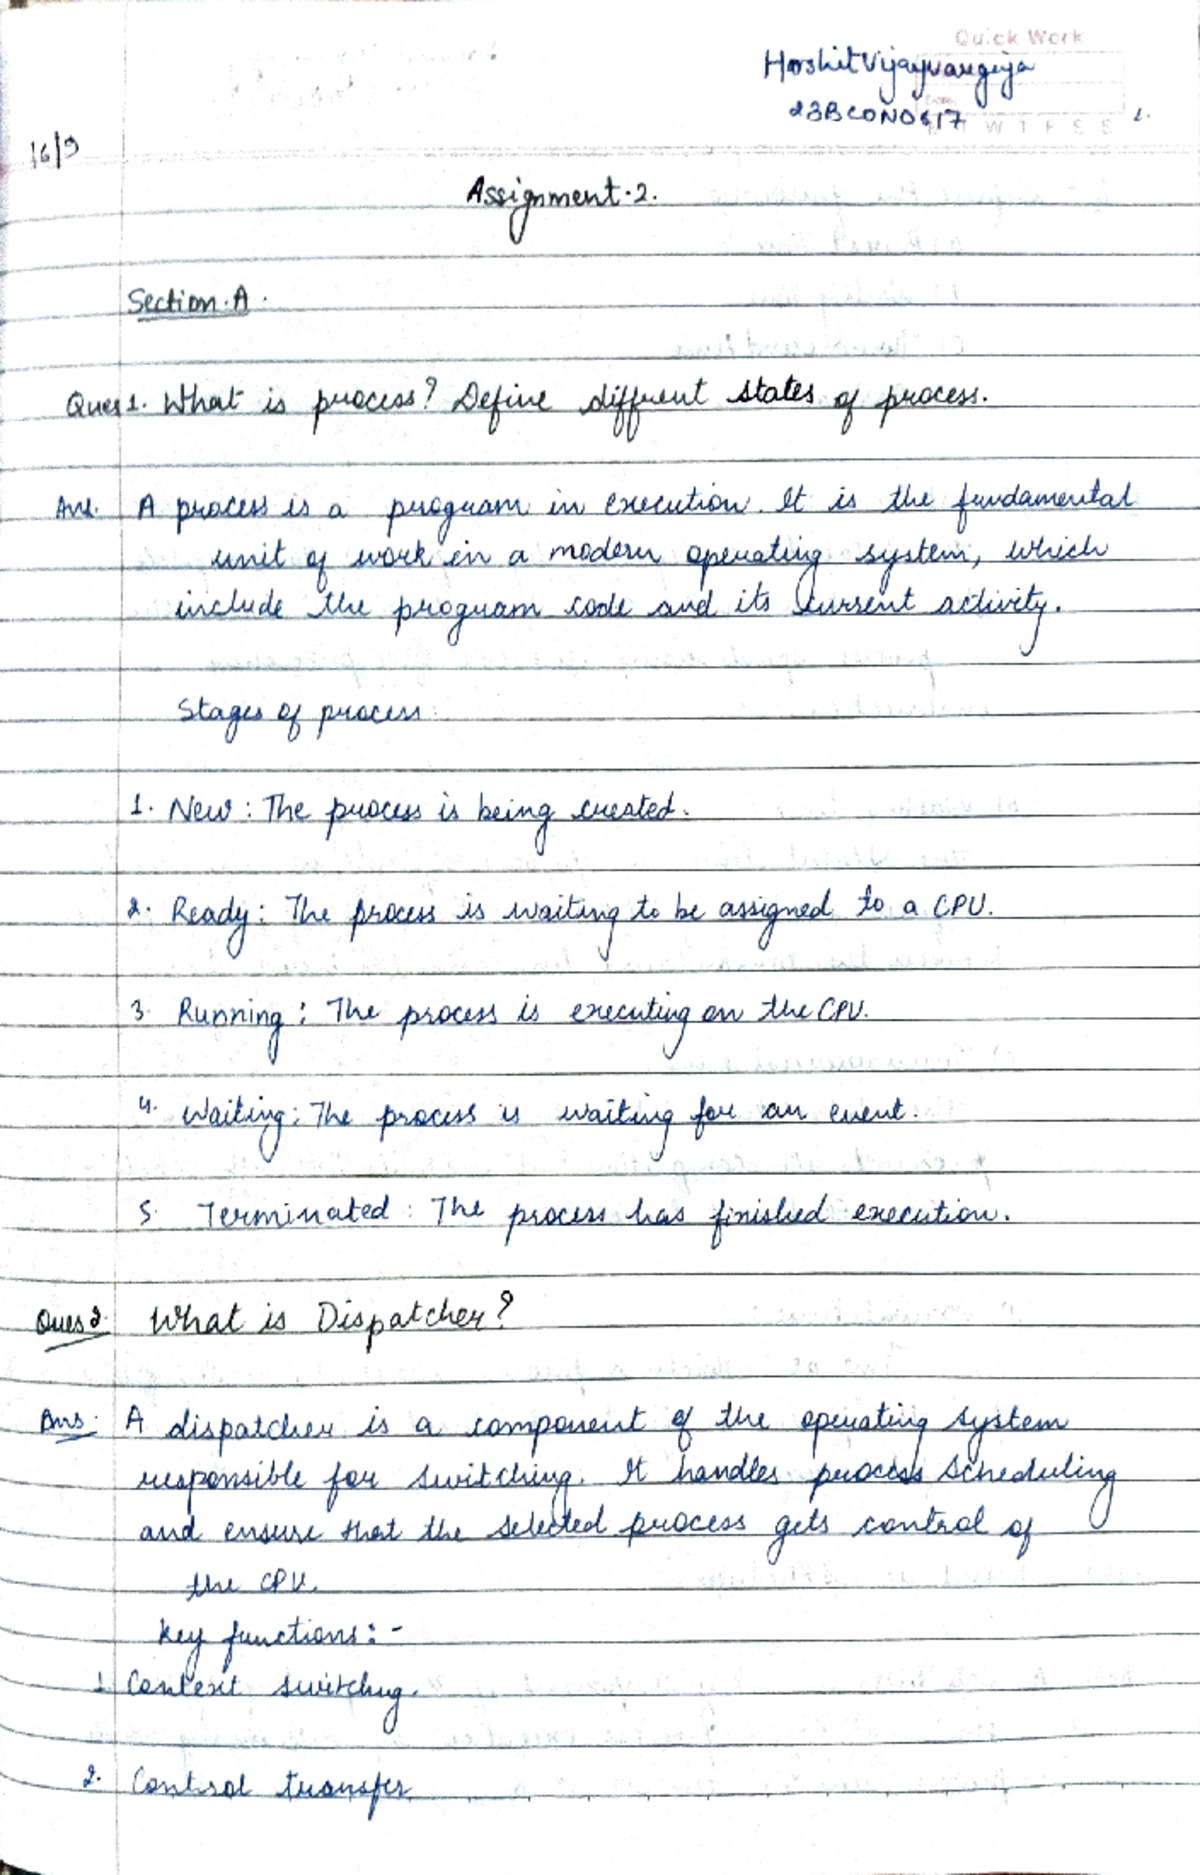 Quick Work
Harshit Vijayvargiya
23BCON0617
W T F S S
1.
16/9
Assignment-2.
Section-A.
Ques1. What is process? Define different states of process.
Ans. A process is a program in execution. It is the fundamental
unit of work in a modern operating system, which
include the program code and its current activity.
Stages of process:
1. New: The process is being created.
2. Ready: The process is waiting to be assigned to a CPU.
3. Running: The process is executing on the CPU.
4. Waiting: The process is waiting for an event.
5. Terminated: The process has finished execution.
Ques2. What is Dispatcher?
Ans. A dispatcher is a component of the operating system
responsible for switching. It handles process scheduling
and ensure that the selected process gets control of
the CPU.
Key functions:-
1. Context switching.
2. Control transfer